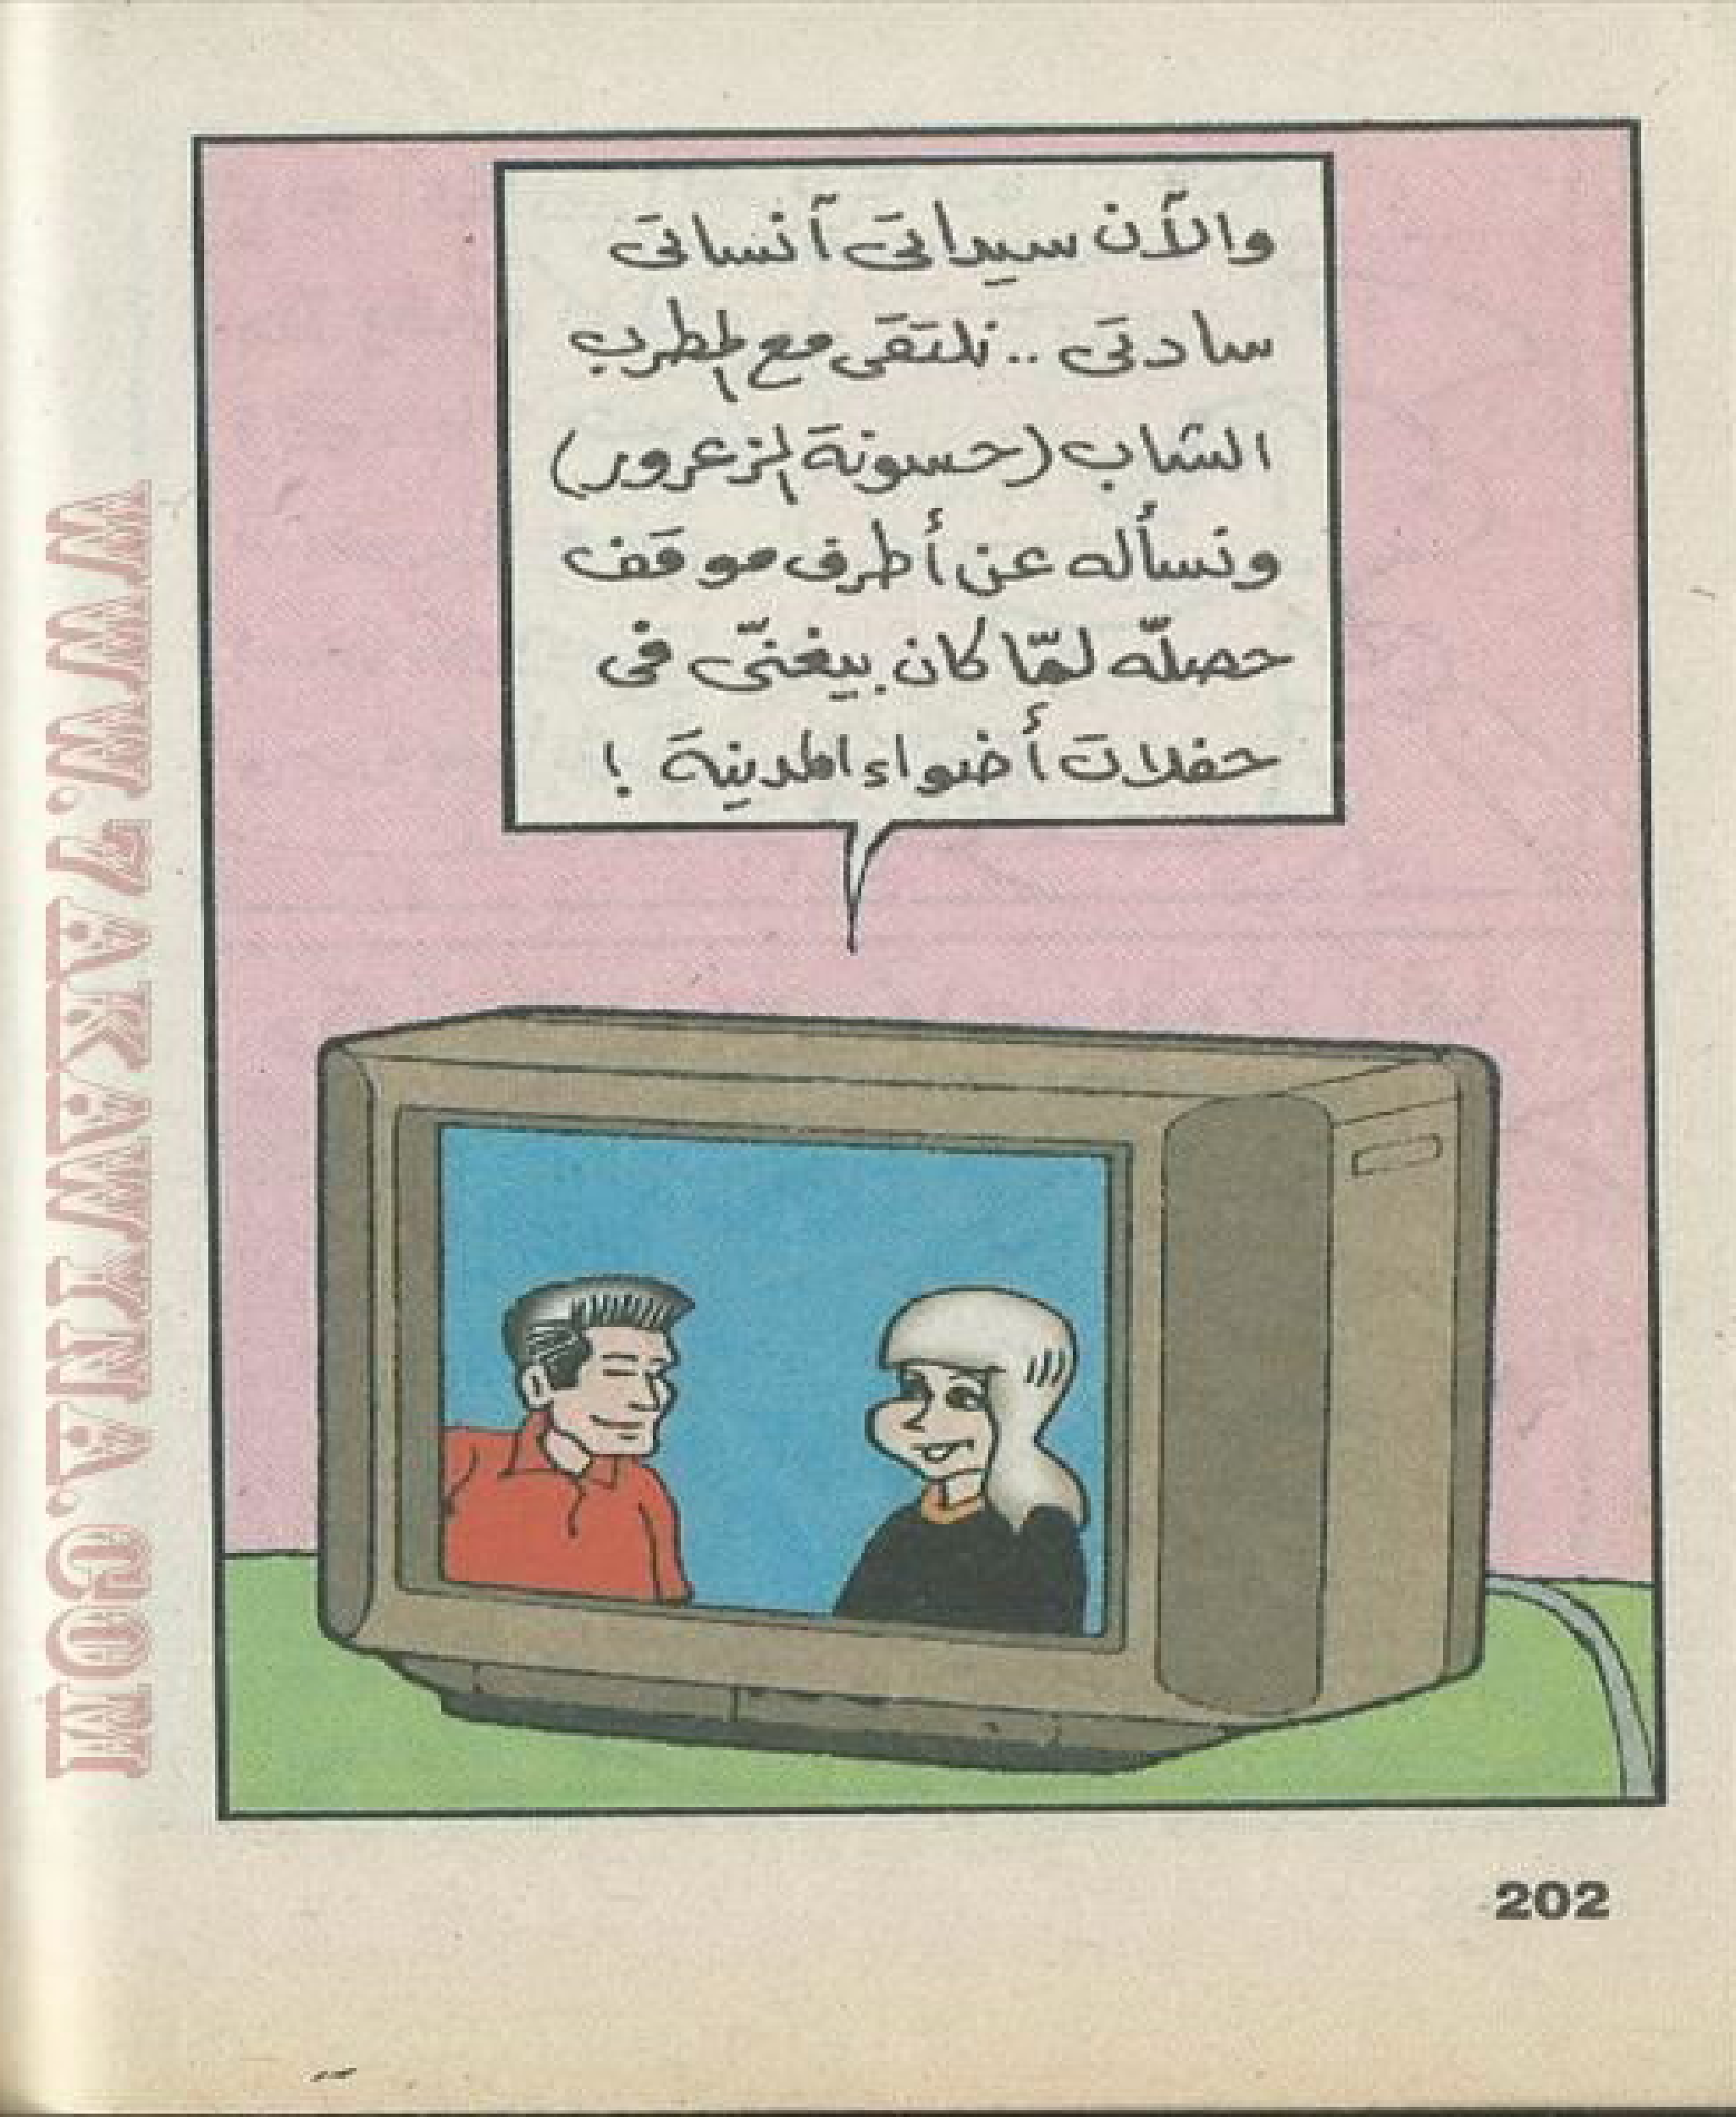 والآن سيداتى آنساتى
سادتى .. نلتقى مع المطرب
الشاب (حسونة الزعرور)
ونسأله عن أطرف موقف
حصلّه لمّا كان بيغنّى فى
حفلات أضواء المدينة !
202
WWW.7AKAWITNA.COM